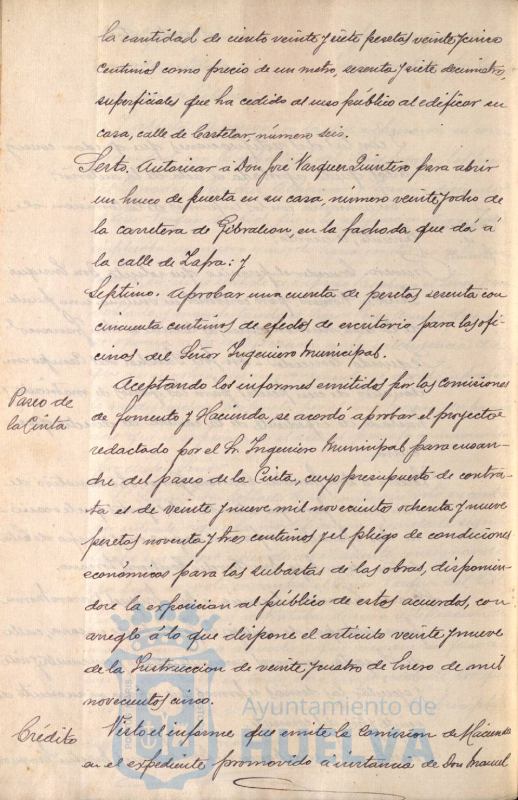 la cantidad de ciento veinte y siete pesetas veinte y cinco
centimos como precio de un metro, sesenta y siete decimetros,
superficiales que ha cedido al uso público al edificar su
casa, calle de Castelar, número seis.
Sesto. Autorizar á Don José Vazquez Quintero para abrir
un hueco de puerta en su casa, número veinte y ocho de
la carretera de Gibraleon, en la fachada que dá á
la calle de Zafra: y
Septimo. Aprobar una cuenta de pesetas sesenta con
cincuenta centimos de efectos de escritorio para las ofi-
cinas del Señor Ingeniero Municipal.
Paseo de
la Cinta
Aceptando los informes emitidos por las comisiones
de Fomento y Hacienda, se acordó aprobar el proyecto
redactado por el Sr. Ingeniero Municipal para ensan-
che del paseo de la Cinta, cuyo presupuesto de contra-
ta es de veinte y nueve mil novecientos ochenta y nueve
pesetas noventa y tres centimos y el pliego de condiciones
económicas para las subastas de las obras, disponien-
dose la exposicion al público de estos acuerdos, con
arreglo á lo que dispone el articulo veinte y nueve
de la Instruccion de veinte y cuatro de Enero de mil
novecientos cinco.
Crédito
Visto el informe que emite la Comision de Hacienda
en el expediente promovido á instancia de Don Manuel
Ayuntamiento de
HUELVA